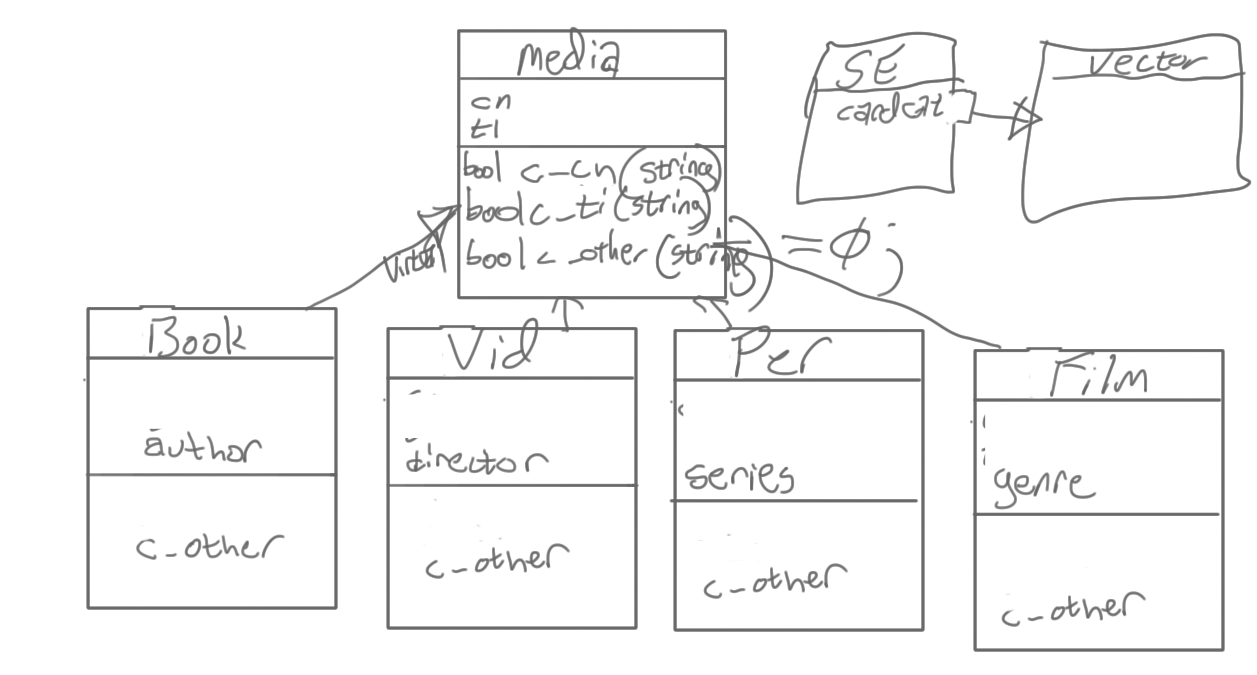 media
cn
ti
bool c-cn (string)
bool c_ti (string)
bool c_other (string) = ø;
SE
cardcat
vector
Book
author
c-other
Vid
director
c-other
Per
series
c-other
Film
genre
c-other